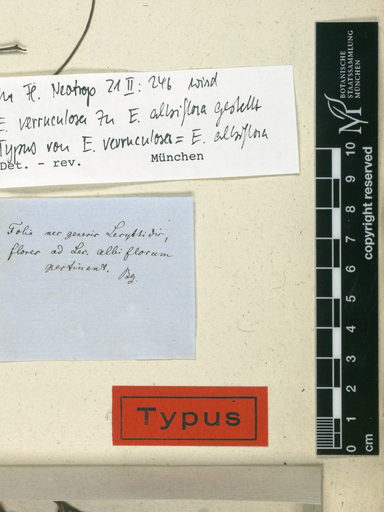 Fl. Neotrop 21 II: 246 wird
E. verruculosa zu E. albiflora gestellt
Typus von E. verruculosa = E. albiflora
Det. - rev. München
Folia
flores ad Lec. albiflorum
pertinent. Bg
Typus
BOTANISCHE
STAATSSAMMLUNG
MÜNCHEN
copyright reserved
0 1 2 3 4 5 6 7 8 9 10
cm